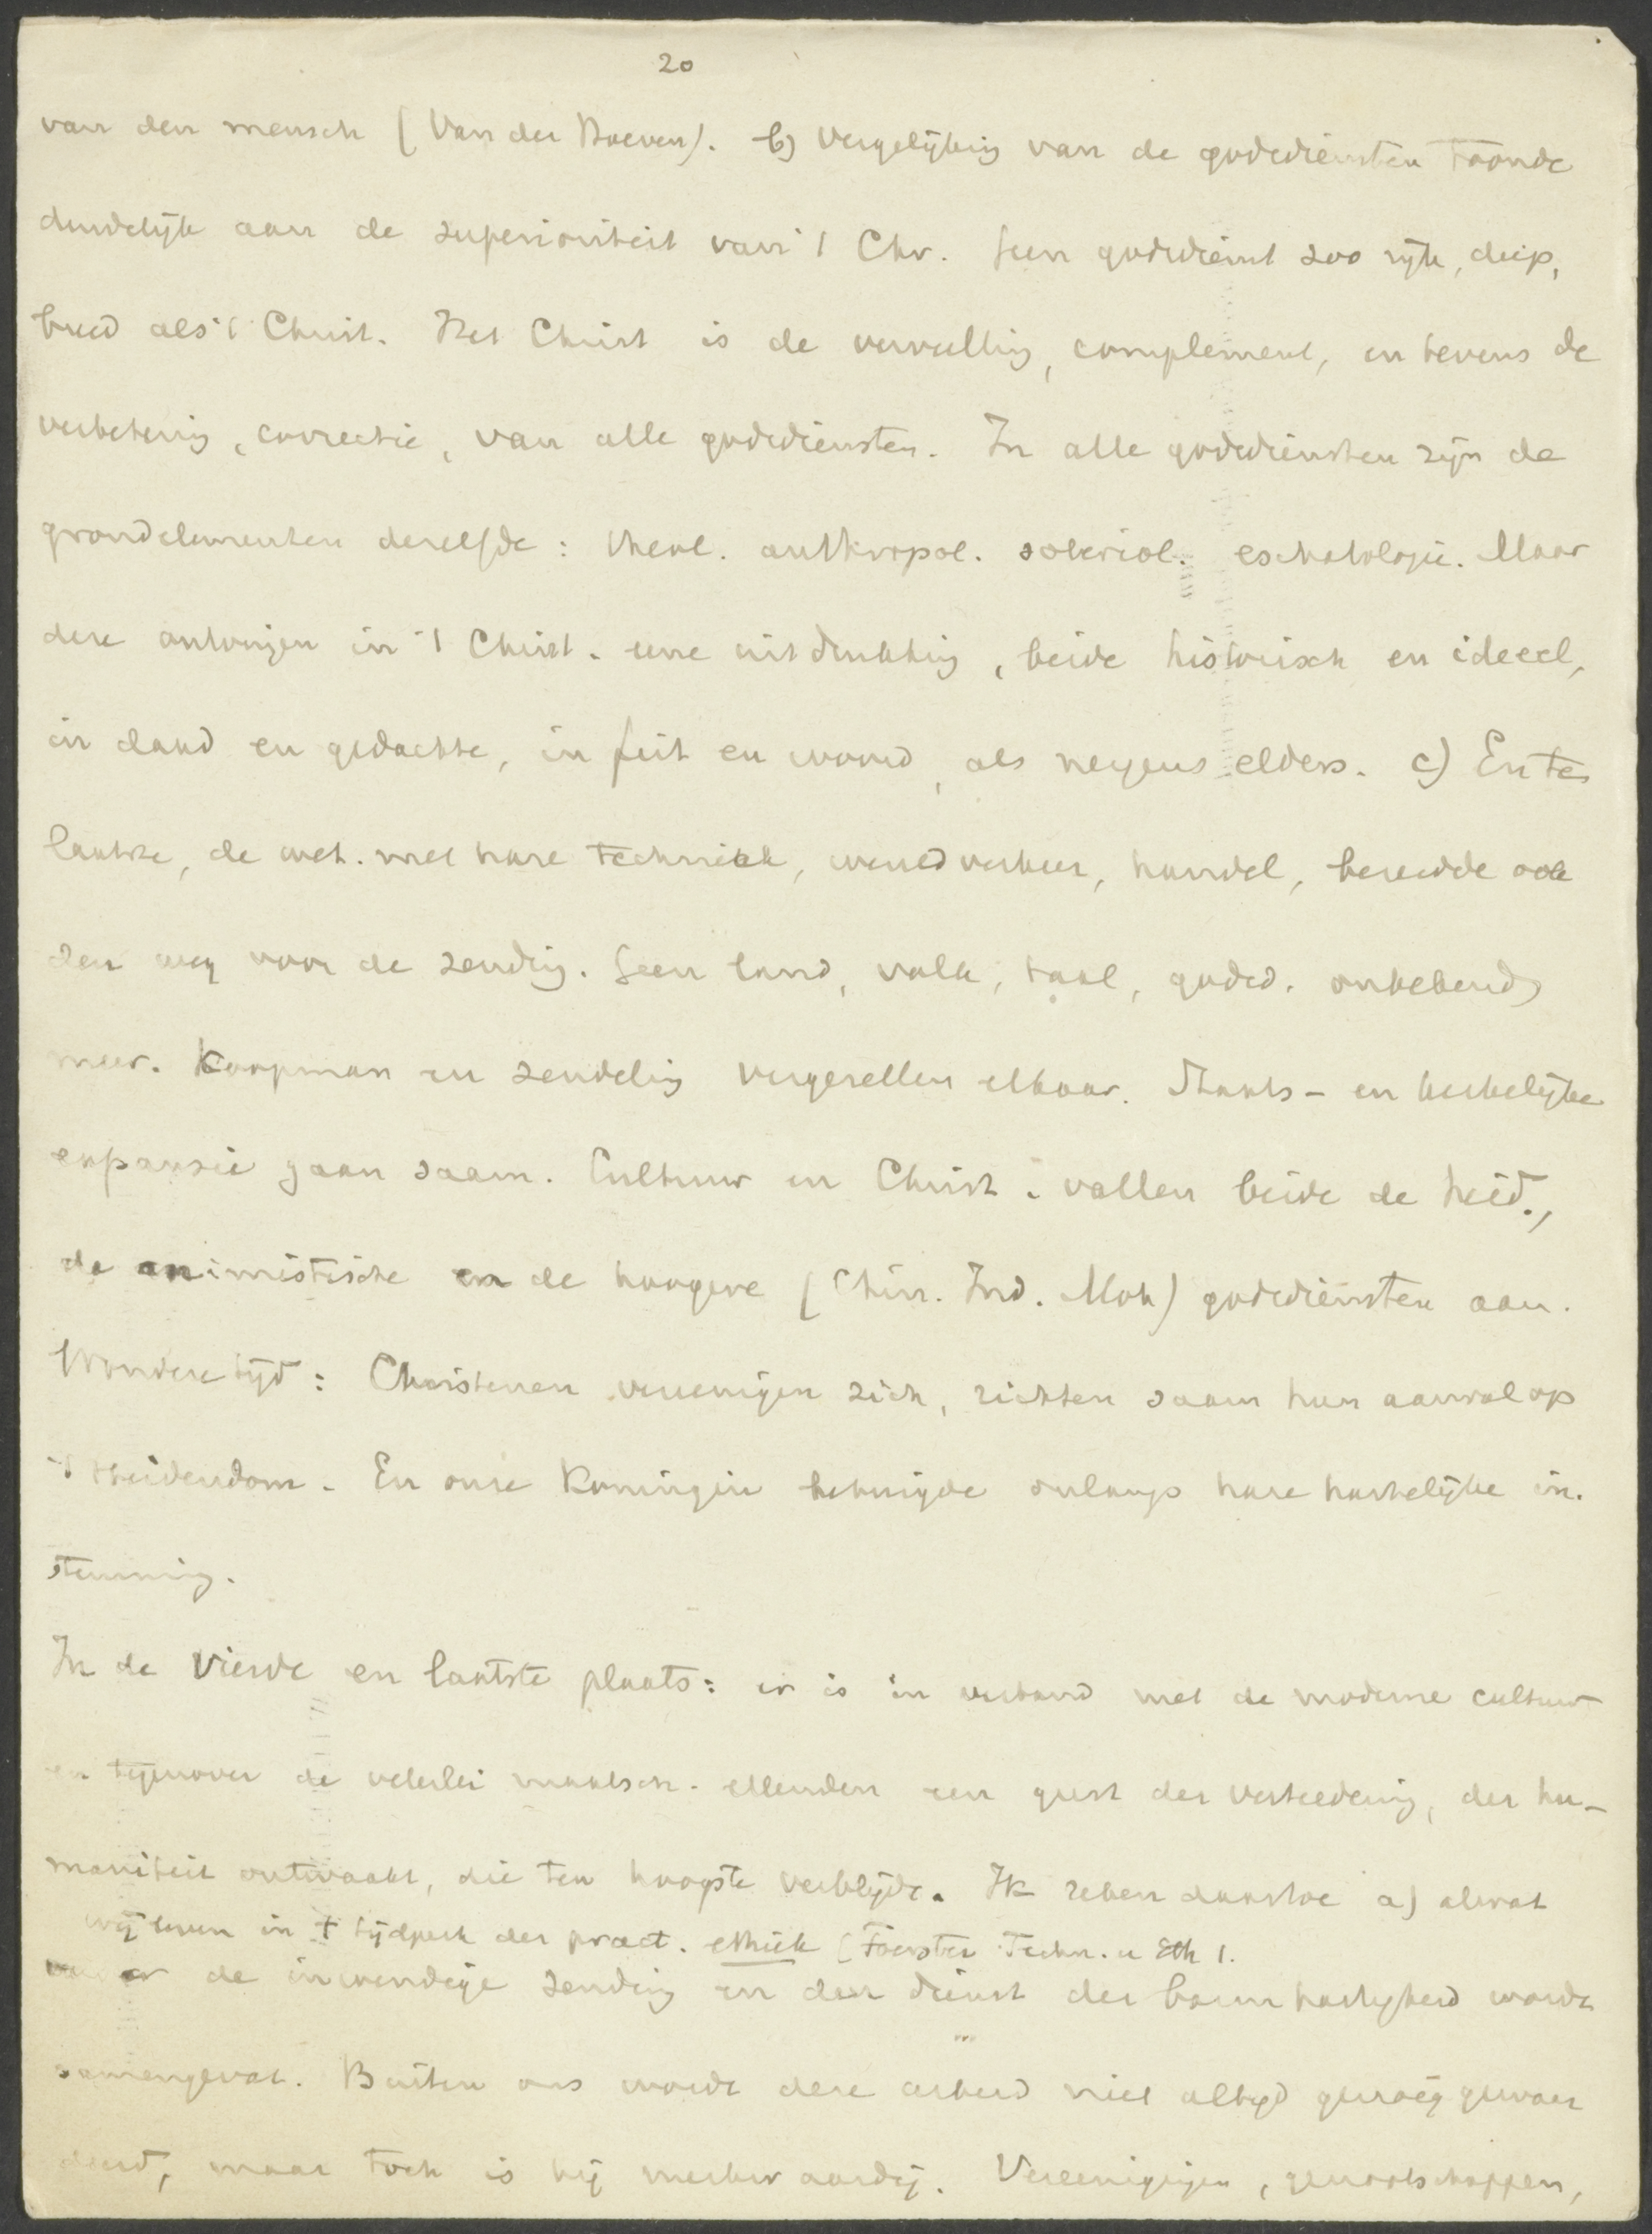 20
van den mensch (Van der Hoeven). b) Vergelijking van de godsdiensten toonde
duidelijk aan de superioriteit van 't Chr. Geen godsdienst zoo rijk, diep,
breed als 't Christ. Het Christ is de vervulling, complement, en tevens de
verbetering, correctie, van alle godsdiensten. In alle godsdiensten zijn de
grondelementen dezelfde: theol. anthropol. soteriol. eschatologie. Maar
deze ontvingen in 't Christ. eene uitdrukking, beide historisch en ideeel,
in daad en gedachte, in feit en woord, als nergens elders. c) En ten
laatste, de wet. met hare techniek, wereldverkeer, handel, bereidde ook
den weg voor de zending. Geen land, volk, taal, godsd. onbekend
meer. Koopman en zendeling vergezellen elkaar. Staats- en kerkelijke
expansie gaan saam. Cultuur en Christ. vallen beide de heid.,
de animistische en de hoogere (Chin. Ind. Moh) godsdiensten aan.
Wondere tijd: Christenen vereenigen zich, richten saam hun aanval op
't Heidendom. En onze Koningin betuigde onlangs hare hartelijke in-
stemming.
In de vierde en laatste plaats: er is in verband met de moderne cultuur
en tegenover de velerlei maatsch. ellenden een geest der verteedering, der hu-
maniteit ontwaakt, die ten hoogste verblijdt. Ik reken daartoe a) alwat
wij leven in 't tijdperk der pract. ethiek (Foerster Techn. u Eth 1.
onder de inwendige zending en den dienst der barmhartigheid wordt
samengevat. Buiten ons wordt deze arbeid niet altijd genoeg gewaar
deerd, maar toch is hij merkwaardig. Vereenigingen, genootschappen,